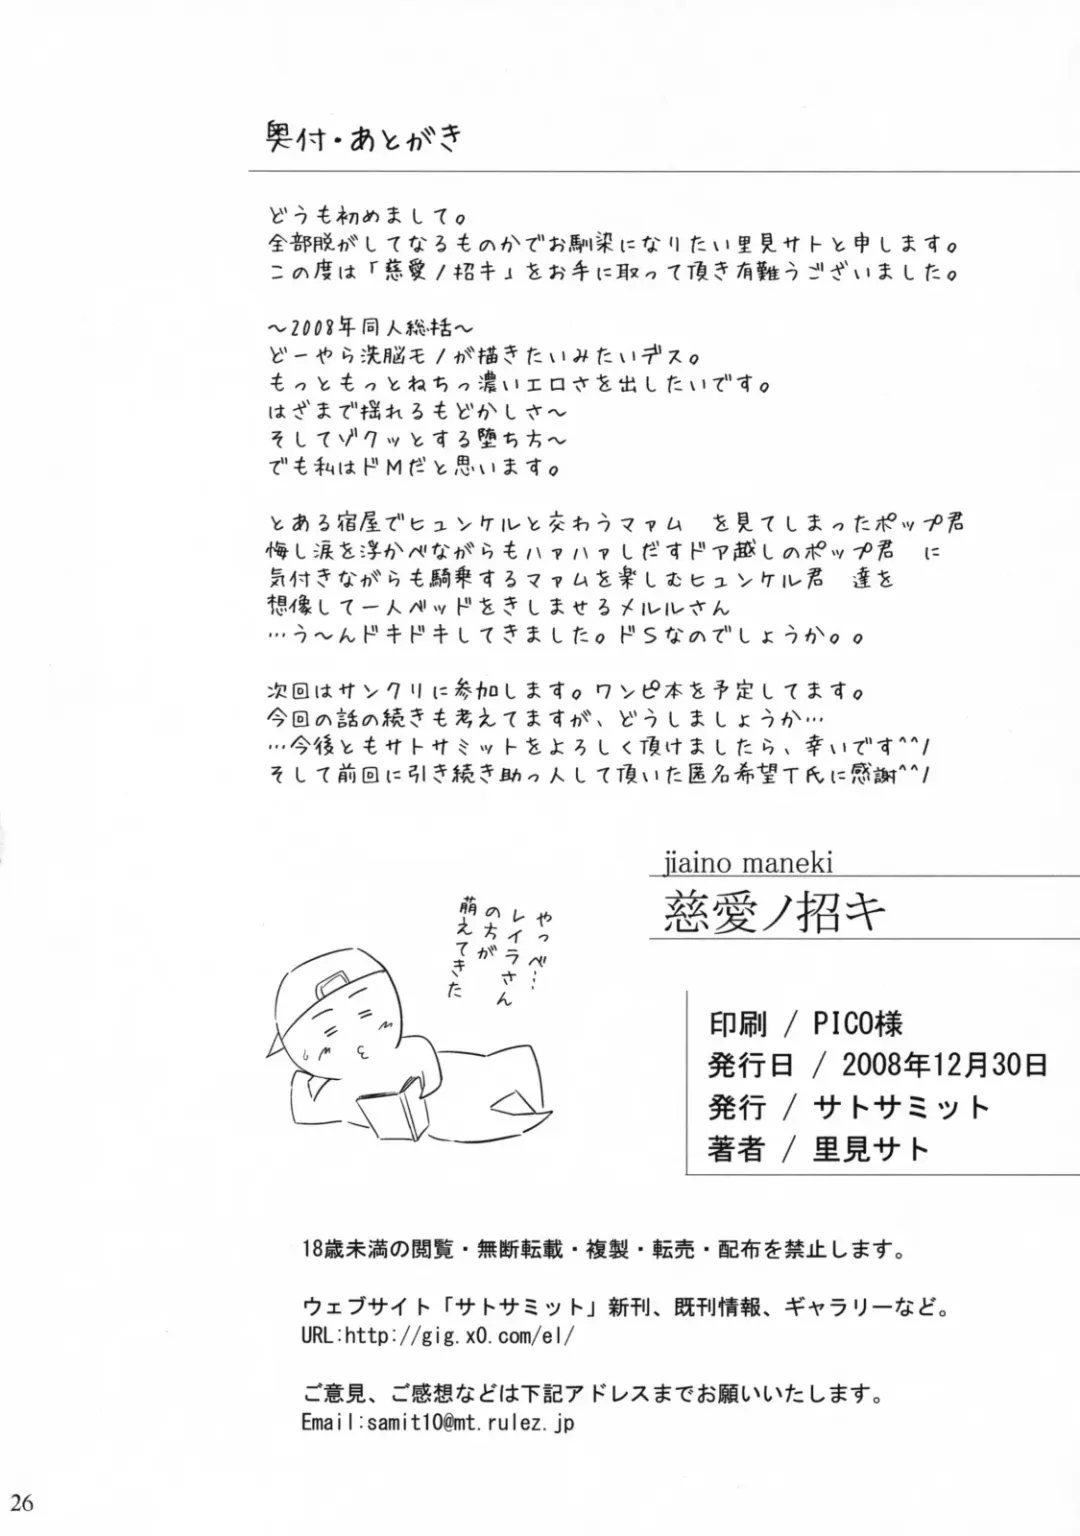 奥付・あとがき
どうも初めまして。
全部脱がしてなるものかでお馴染になりたい里見サトと申します。
この度は「慈愛ノ招キ」をお手に取って頂き有難うございました。
〜2008年同人総括〜
どーやら洗脳モノが描きたいみたいデス。
もっともっとねちっ濃いエロさを出したいです。
はざまで揺れるもどかしさ〜
そしてゾクッとする堕ち方〜
でも私はドMだと思います。
とある宿屋でヒュンケルと交わうマァム　を見てしまったポップ君
悔し涙を浮かべながらもハァハァしだすドア越しのポップ君　に
気付きながらも騎乗するマァムを楽しむヒュンケル君　達を
想像して一人ベッドをきしませるメルルさん
…う〜んドキドキしてきました。ドSなのでしょうか。。
次回はサンクリに参加します。ワンピ本を予定してます。
今回の話の続きも考えてますが、どうしましょうか…
…今後ともサトサミットをよろしく頂けましたら、幸いです^^/
そして前回に引き続き助っ人して頂いた匿名希望T氏に感謝^^/
やっべ…
レイラさん
の方が
萌えてきた
jiaino maneki
慈愛ノ招キ
印刷 / PICO様
発行日 / 2008年12月30日
発行 / サトサミット
著者 / 里見サト
18歳未満の閲覧・無断転載・複製・転売・配布を禁止します。
ウェブサイト「サトサミット」新刊、既刊情報、ギャラリーなど。
URL:http://gig.x0.com/el/
ご意見、ご感想などは下記アドレスまでお願いいたします。
Email:samit10@mt.rulez.jp
26